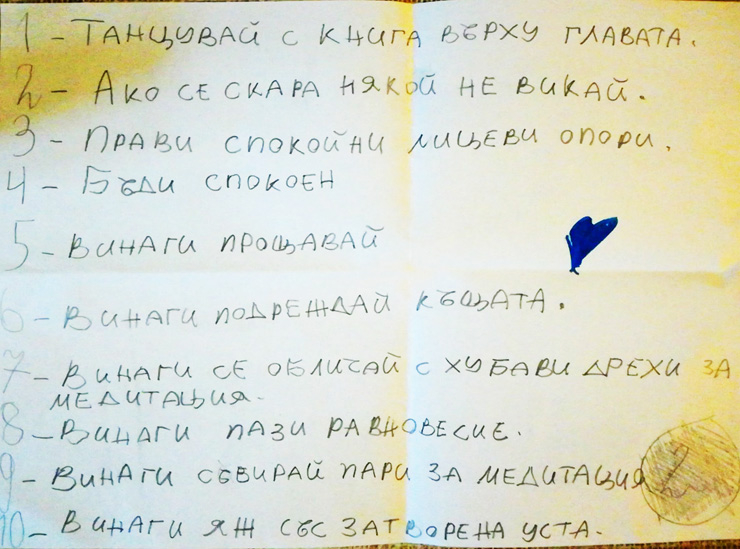 1 - ТАНЦУВАЙ С КНИГА ВЪРХУ ГЛАВАТА.
2 - АКО СЕ СКАРА НЯКОЙ НЕ ВИКАЙ.
3 - ПРАВИ СПОКОЙНИ ЛИЦЕВИ ОПОРИ.
4 - БЪДИ СПОКОЕН
5 - ВИНАГИ ПРОЩАВАЙ
6 - ВИНАГИ ПОДРЕЖДАЙ КЪЩАТА.
7 - ВИНАГИ СЕ ОБЛИЧАЙ С ХУБАВИ ДРЕХИ ЗА
МЕДИТАЦИЯ.
8 - ВИНАГИ ПАЗИ РАВНОВЕСИЕ.
9 - ВИНАГИ СЪБИРАЙ ПАРИ ЗА МЕДИТАЦИЯ
2
10 - ВИНАГИ ЯЖ СЪС ЗАТВОРЕНА УСТА.